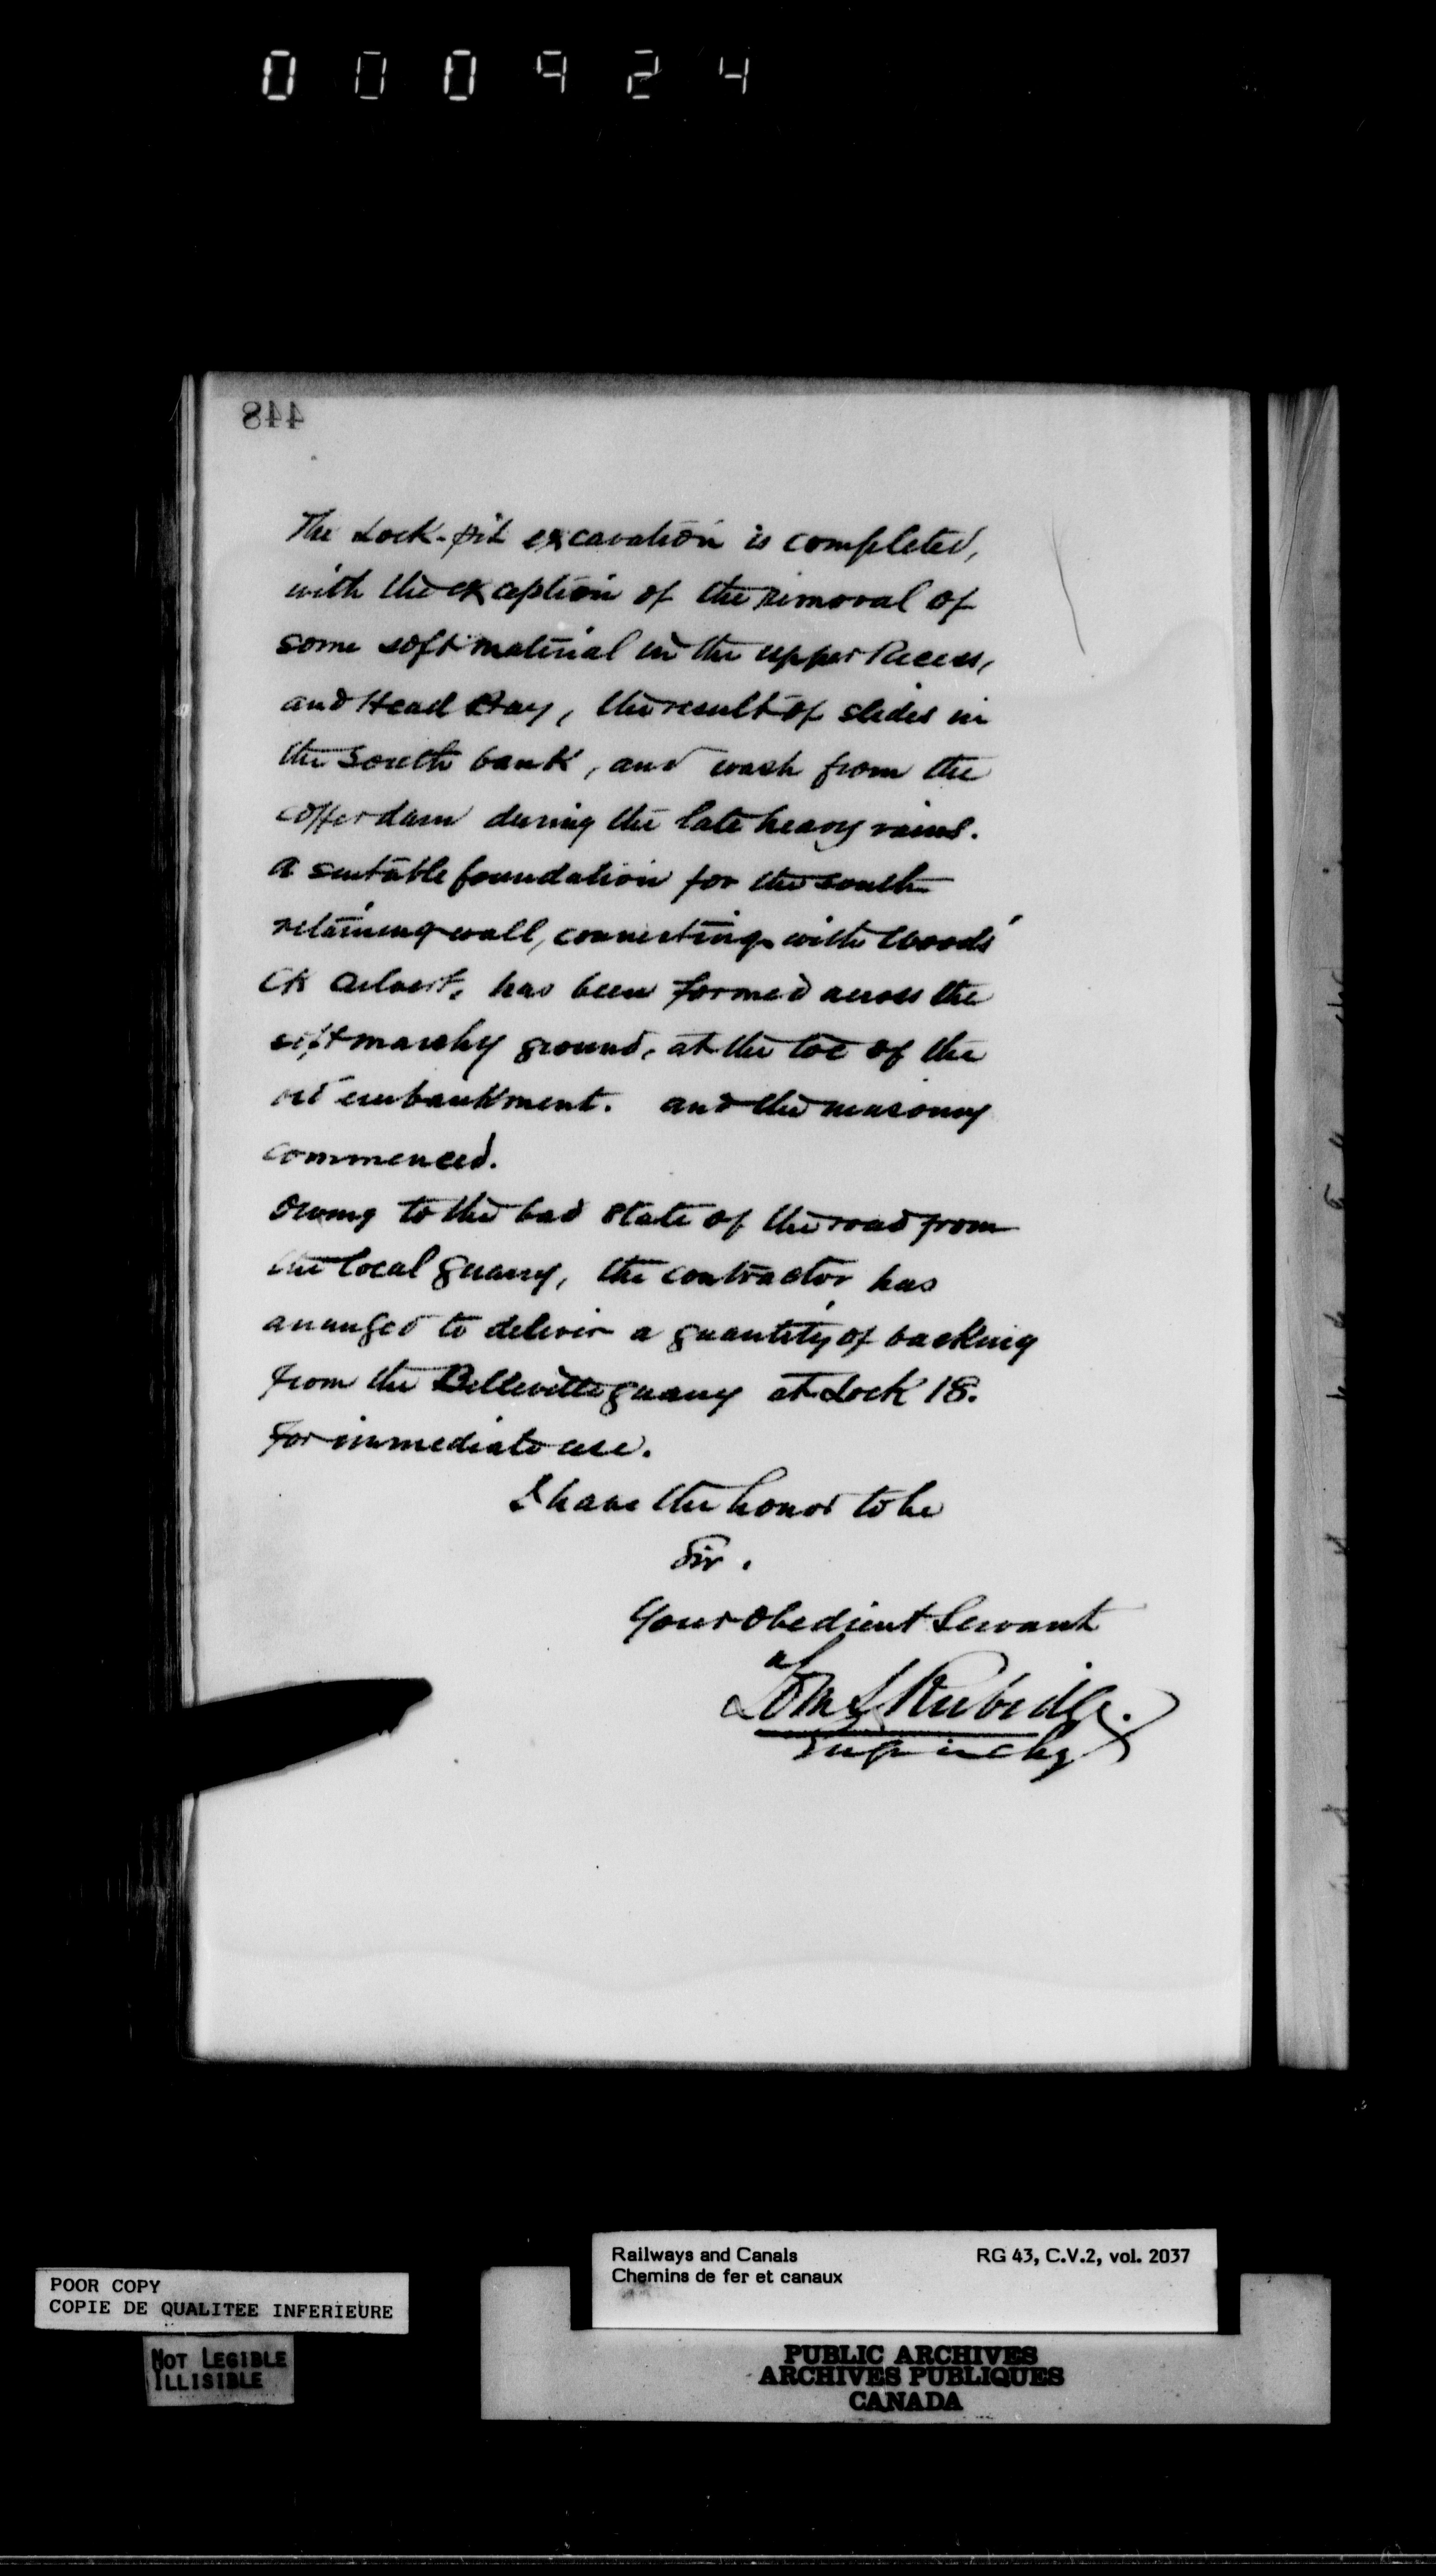 000924
448
The Lock-pit excavation is completed,
with the exception of the removal of
some soft material in the upper Recess,
and Head Bay, the result of slides in
the South bank, and wash from the
cofferdam during the late heavy rains.
A suitable foundation for the south
retaining wall, connecting with Woods'
Ck Culvert, has been formed across the
soft marshy ground, at the toe of the
old embankment. and the masonry
commenced.
Owing to the bad state of the road from
the local quarry, the contractor has
arranged to deliver a quantity of backing
from the Belleville quarry at Lock 18.
for immediate use.
I have the honor to be
Sir.
Your Obedient Servant
Tom S Rubidge.
Eng in chg
Railways and Canals RG 43, C.V.2, vol. 2037
Chemins de fer et canaux
POOR COPY
COPIE DE QUALITEE INFERIEURE
NOT LEGIBLE
ILLISIBLE
PUBLIC ARCHIVES
ARCHIVES PUBLIQUES
CANADA